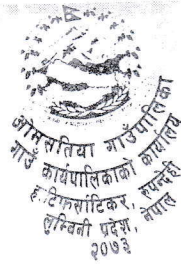 ओमसतिया गाउँपालिका
गाउँ कार्यपालिकाको कार्यालय
रुपन्देही
लुम्बिनी प्रदेश, नेपाल
२०७३